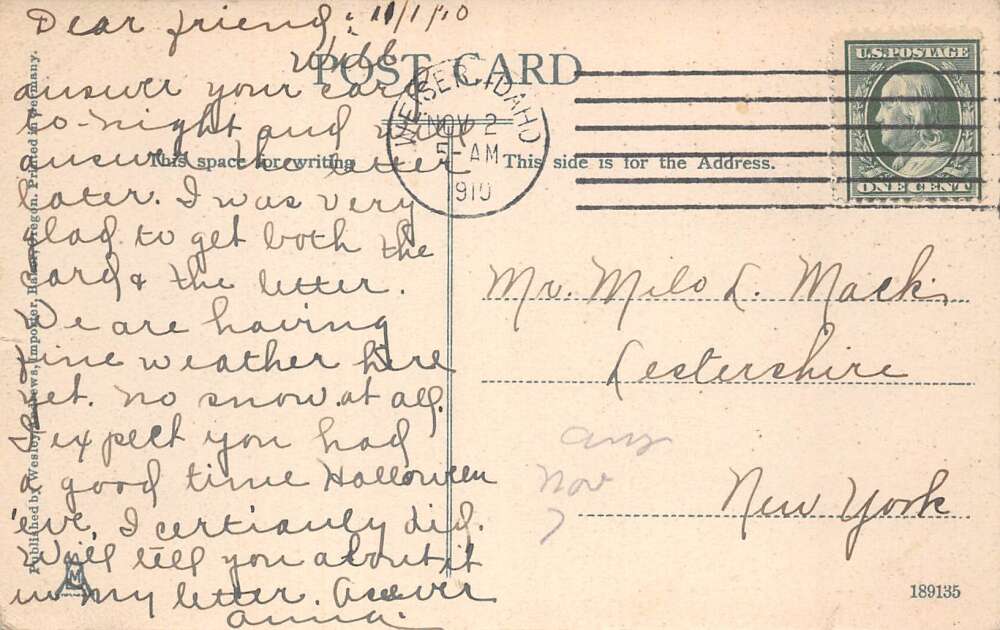 Dear friend; 11/1/10
Will
answer your card
to-night and will
answer the letter
later. I was very
glad to get both the
card & the letter.
We are having
fine weather here
yet. No snow at all.
I expect you had
a good time Halloween
'eve, I certianly did.
Will tell you about it
in my letter. As ever
Anna.
POST CARD
This space for writing
This side is for the Address.
WEISER, IDAHO
NOV 2
AM
1910
U.S. POSTAGE
ONE CENT
Mr. Milo L. Mack,
Lestershire
New York
Nov
7
Published by Wesley Andrews, Importer, Baker, Oregon. Printed in Germany.
M
189135